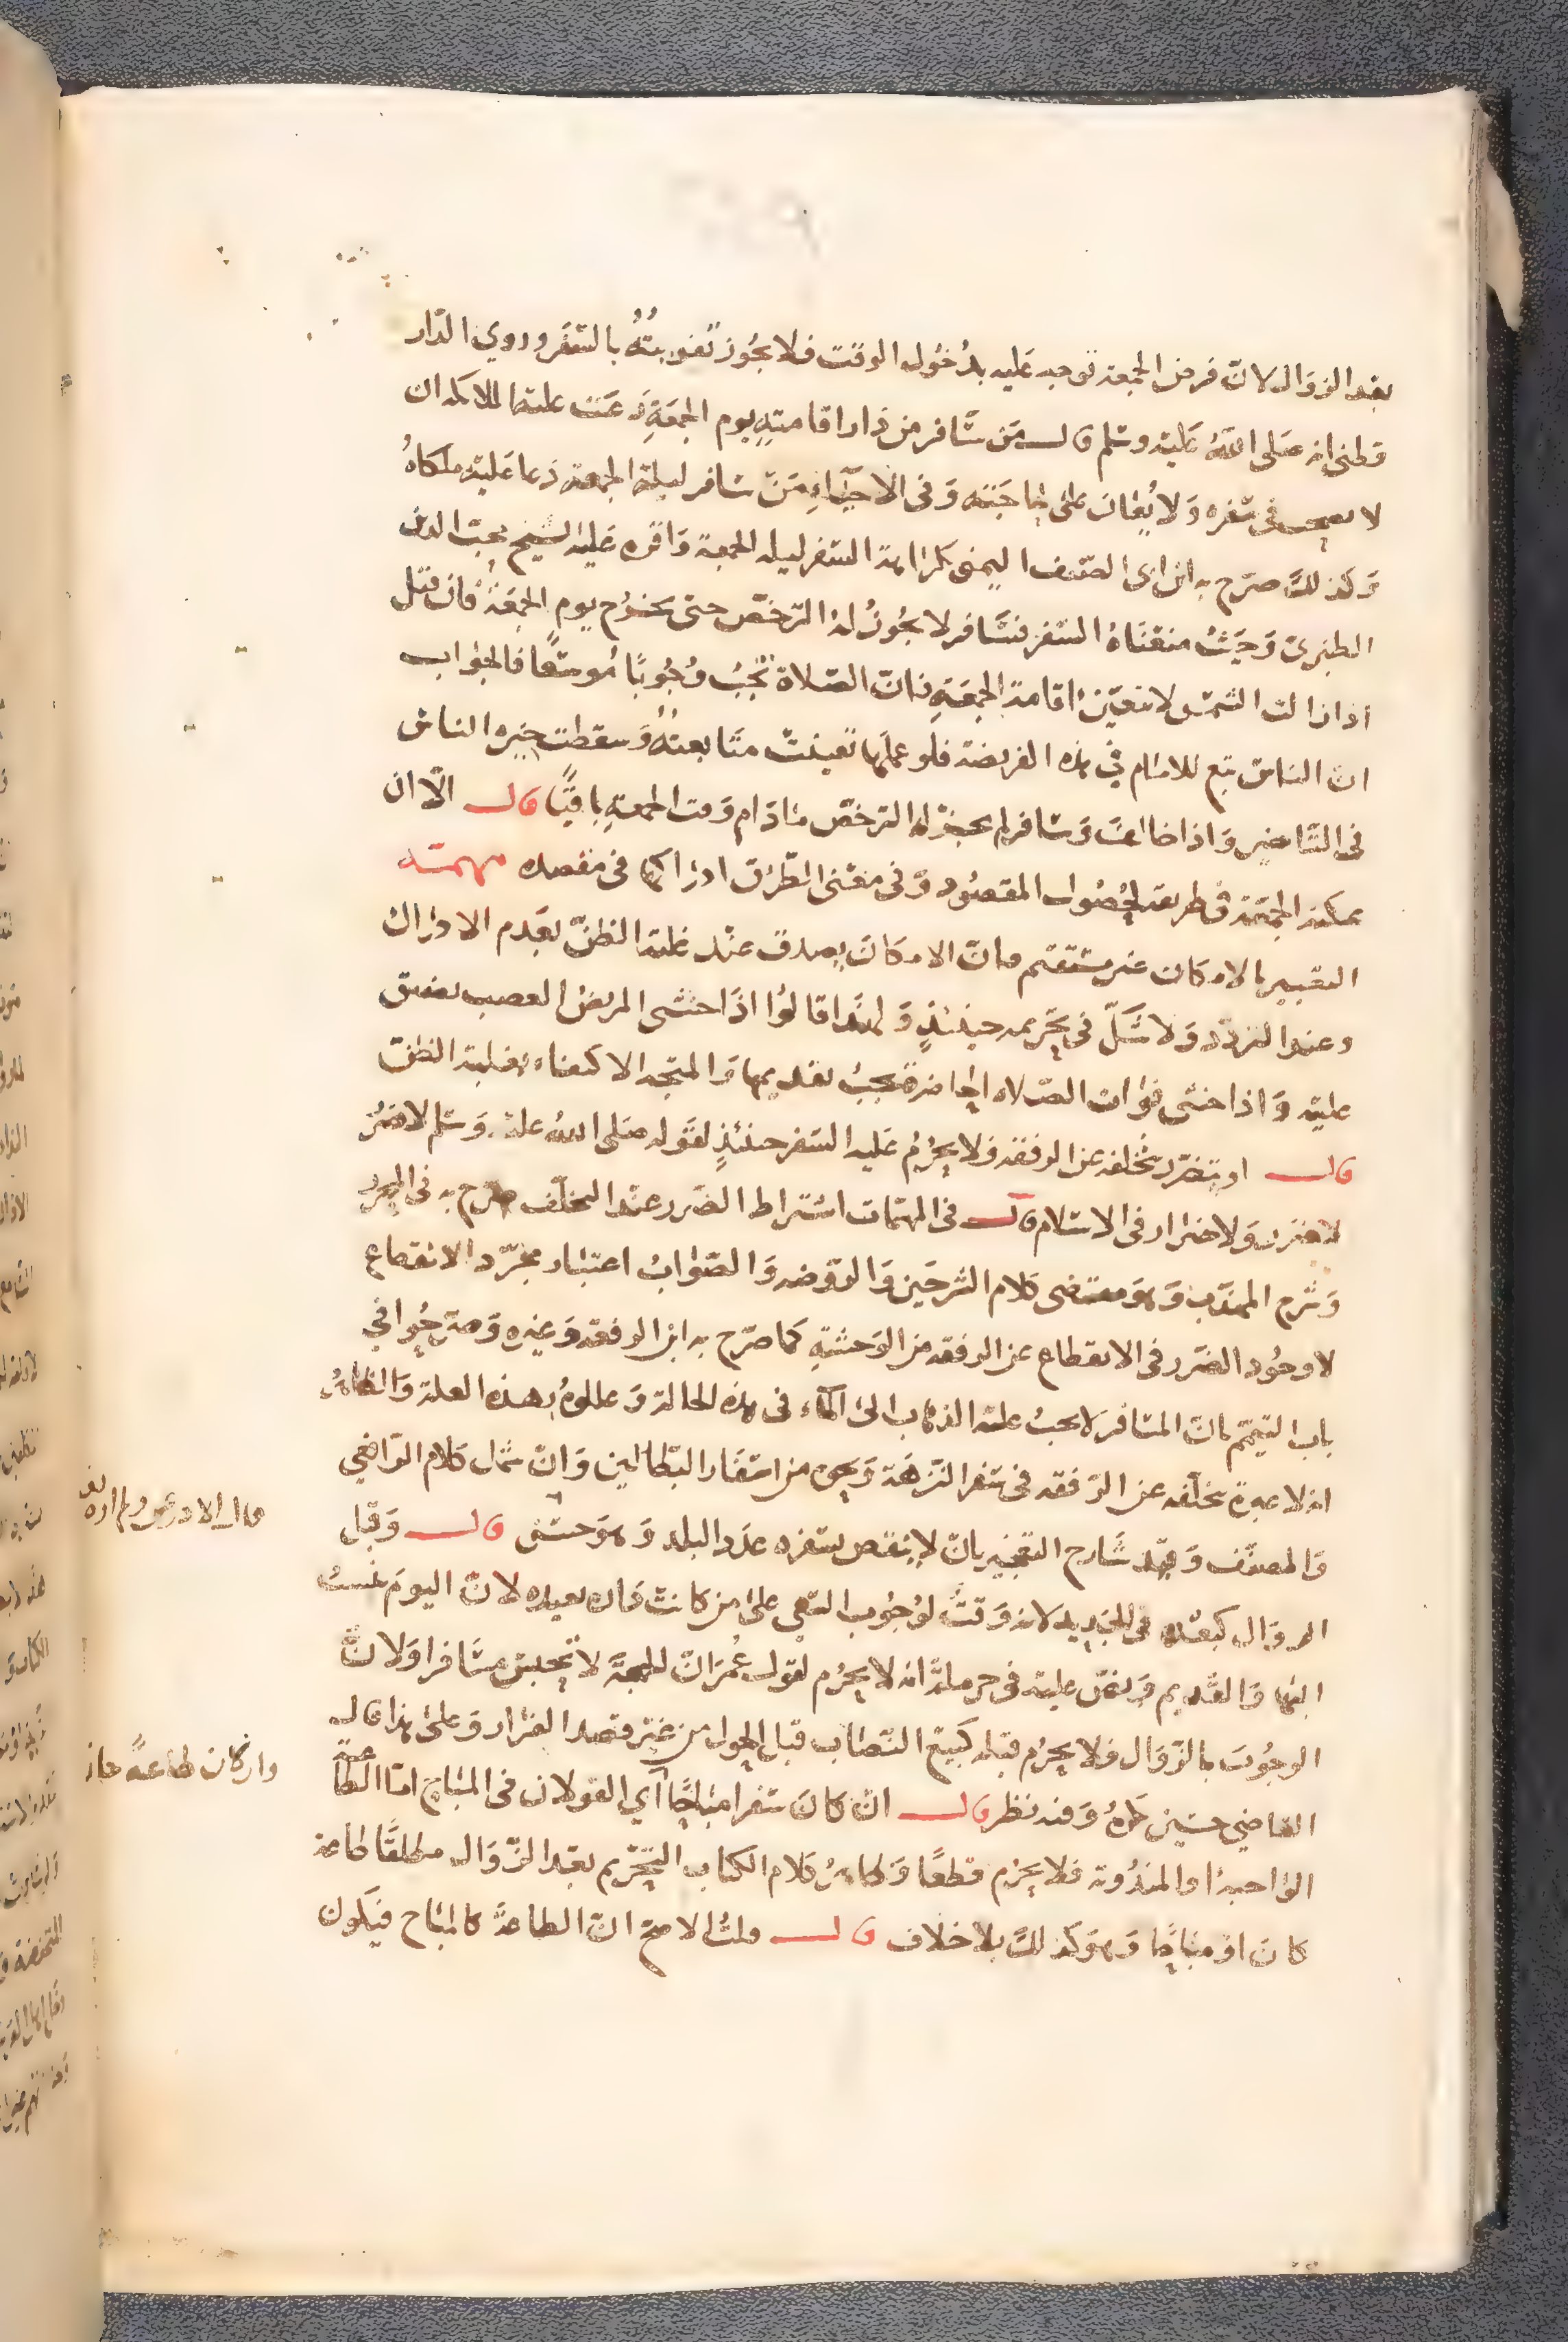 بعد الزوال لان فرض الجمعة توجه عليه بدخول الوقت فلا يجوز تفويته بالسفر وروي الدار
قطني انه صلى الله عليه وسلم قال من سافر من دار اقامته يوم الجمعة دعت عليه الملائكة ان
لا يصحب في سفره ولا يعان على حاجته وفي الاحياء من سافر ليلة الجمعة دعا عليه ملكاه
وكذلك صرح به ابن ابي الصيف اليمني بكراهة السفر ليلة الجمعة واقره عليه الشيخ محب الدين
الطبري وحيث منعناه السفر فسافر لا يجوز له الترخص حتى يخرج يوم الجمعة فان قيل
اذا زالت الشمس لا تتعين اقامة الجمعة فان الصلاة تجب وجوبا موسعا فالجواب
ان الناس تبع للامام في هذه الفريضة فلو عملها تعينت متابعته وسقطت خيرة الناس
في التاخير واذا خالف وسافر لم يجز له الترخص ما دام وقت الجمعة باقيا قال الا ان
يمكنه الجمعة في طريقه لحصول المقصود وفي معنى الطرق ادراكها في مقصده مهمة
التعبير بالامكان غير مستقيم فان الامكان يصدق عند غلبة الظن بعدم الادراك
وعند التردد ولا شك في تحريمه حينئذ ولهذا قالوا اذا خشي المريض العصب تضيق
عليه واذا خشى فوات الصلاة الحاضرة يجب تقديمها والمتجه الاكتفاء بغلبة الظن
قال او يتضرر بتخلفه عن الرفقة فلا يحرم عليه السفر حينئذ لقوله صلى الله عليه وسلم لا ضرر
لا ضرر ولا ضرار في الاسلام قال في المهمات اشتراط الضرر عند التخلف صرح به في المحرر
وشرح المهذب وهو مقتضى كلام الشرحين والروضة والصواب اعتبار مجرد الانقطاع
لا وجود الضرر في الانقطاع عن الرفقة من الوحشة كما صرح به ابن الرفعة وغيره وصرحوا في
باب التيمم بان المسافر لا يجب عليه الذهاب الى الماء في هذه الحالة وعللوه بهذه العلة والظاهر
انه لا عبرة بتخلفه عن الرفقة في سفر النزهة ونحوه من اسفار البطالين وان شمل كلام الرافعي
والمصنف وقيد شارح التعجيز بان لا ينقص بسفره عدد البلد وهو حسن قال وقبل
الزوال كبعده في الجديد لانه وقت لوجوب السعي على من كانت داره بعيدة لان اليوم نسب
اليها والقديم ونص عليه في حرملة انه لا يحرم لقول عمر ان الجمعة لا تحبس مسافرا ولان
الوجوب بالزوال فلا يحرم قبله كبيع النصاب قبل الحول من غير قصد الفرار وعلى هذا قال
القاضي حسين يكره وفيه نظر قال ان كان سفرا مباحا اي القولان في المباح اما الطاعة
الواجبة او المندوبة فلا يحرم قطعا وظاهر كلام الكتاب التحريم بعد الزوال مطلقا طاعة
كان او مباحا وهو كذلك بلا خلاف قال قلت الاصح ان الطاعة كالمباح فيكون
قال الاذرعي ولم اره
وان كان طاعة جاز